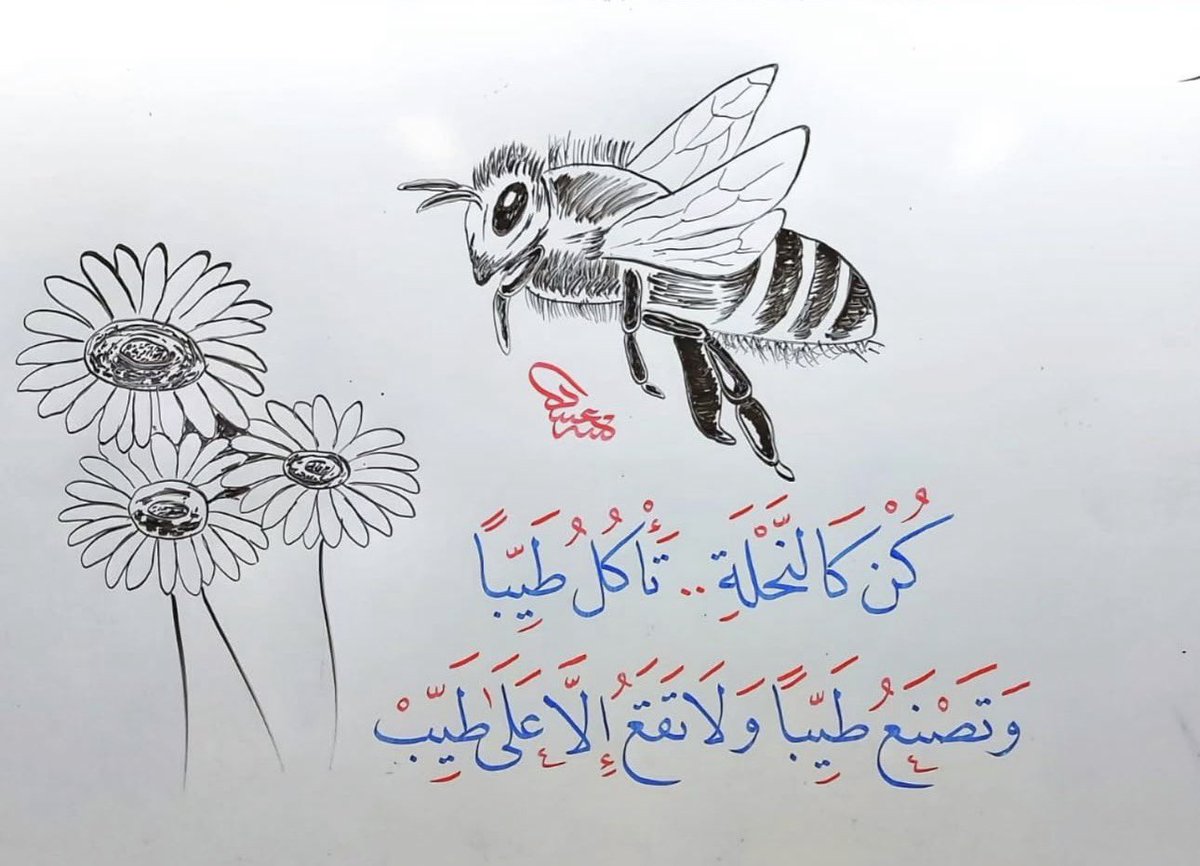 كُنْ كَالنَّحْلَةِ .. تَأْكُلُ طَيِّبًا
وَتَصْنَعُ طَيِّبًا وَلَا تَقَعُ إِلَّا عَلَىٰ طَيِّبْ